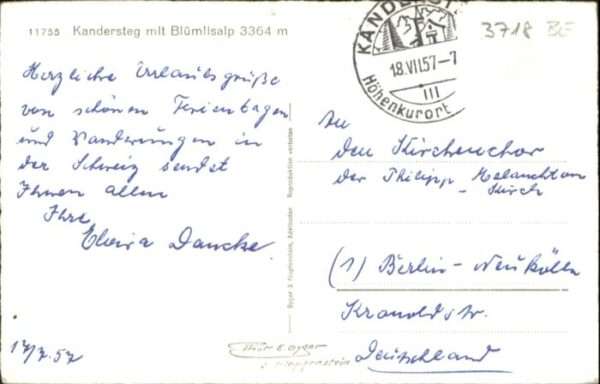 11755 Kandersteg mit Blümlisalp 3364 m
Herzliche Urlaubsgrüße
von schönen Ferientagen
und Wanderungen in
der Schweiz sendet
Ihnen allen
Ihre
Elvira Dancke.
17/7.57
KANDERST
18.VII.57-7
III
Höhenkurort
3718 BE
An
den Kirchenchor
der Philipp Melanchton
- Kirch
(1) Berlin-Neukölln
Kranoldstr.
Deutschland
Reproduktion verboten